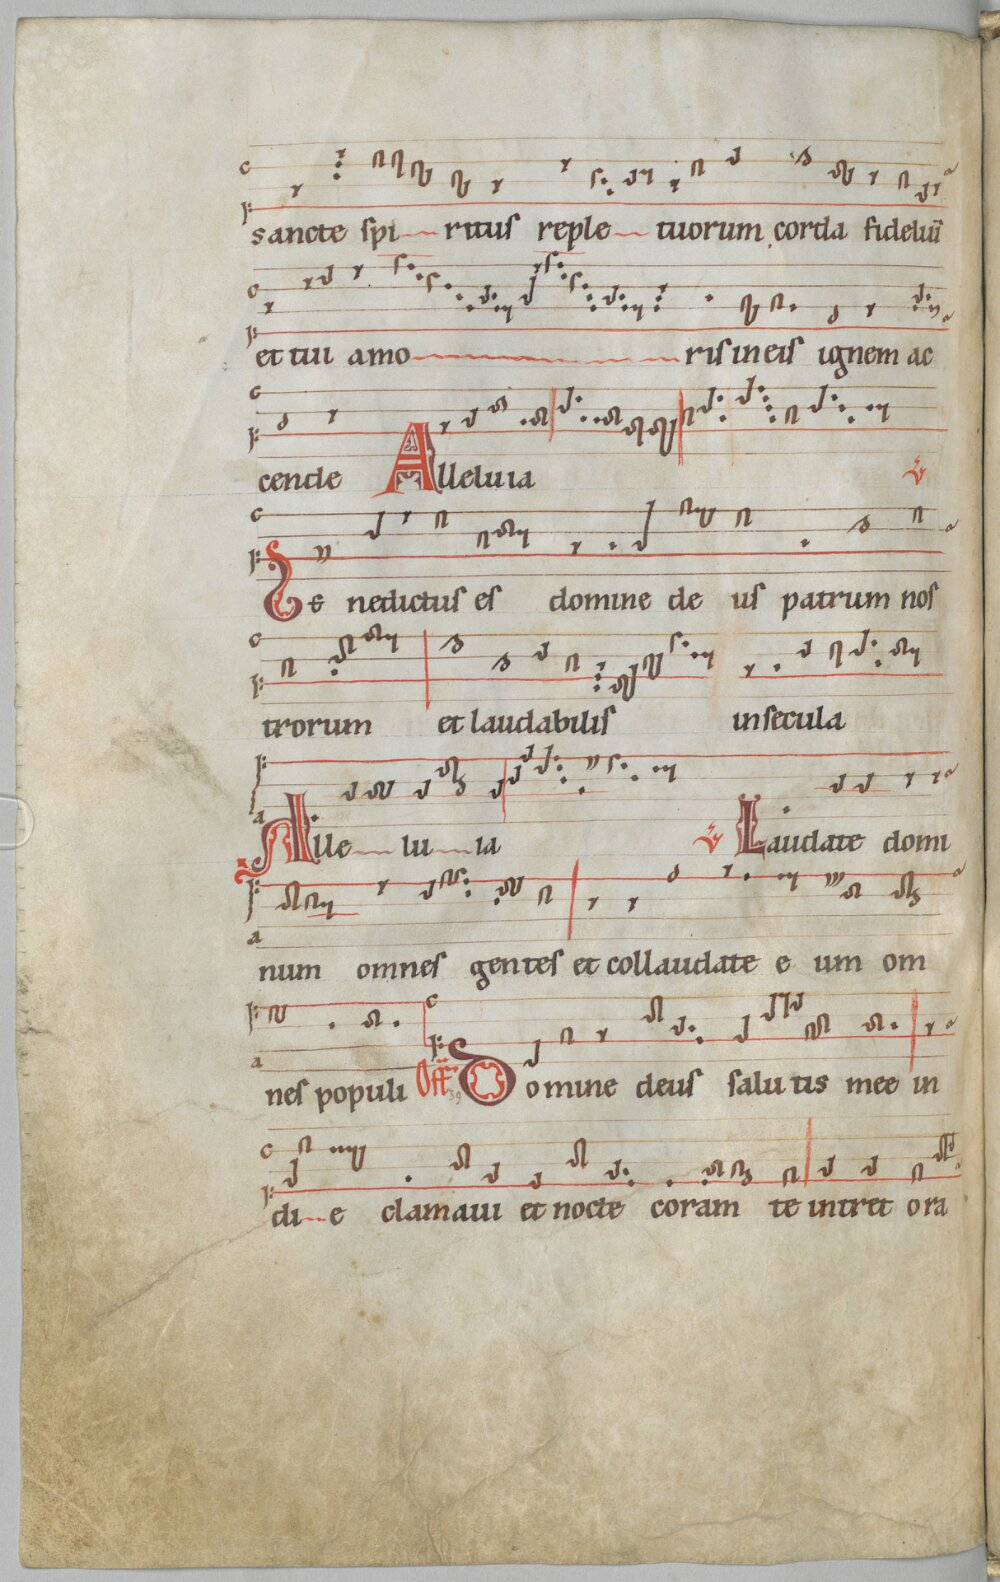 sancte spi ritus reple tuorum corda fideliū
et tui amo ris in eis ignem ac
cende Alleluia ℣
Be nedictus es domine de us patrum nos
trorum et laudabilis in secula
Alle lu ia ℣ Laudate domi
num omnes gentes et collaudate e um om
nes populi Off Domine deus salutis mee in
di e clamaui et nocte coram te intret ora